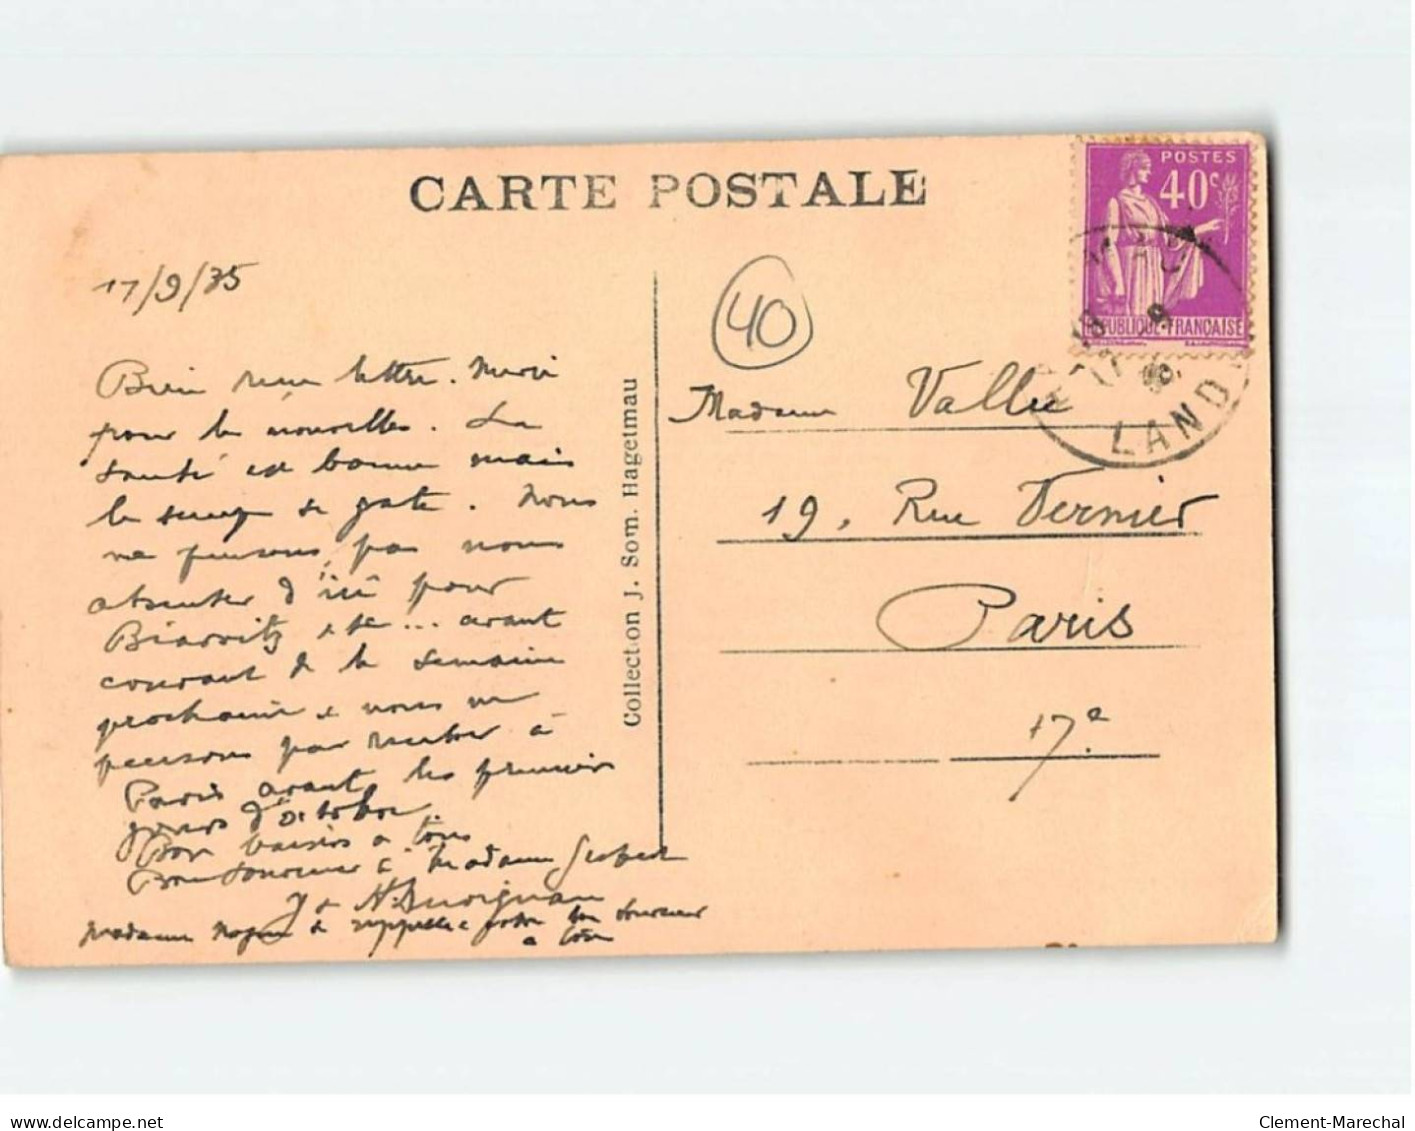 CARTE POSTALE
POSTES
40c
REPUBLIQUE FRANÇAISE
LAND
17/9/35
40
Bien reçu lettre. Merci
pour les nouvelles. La
santé est bonne mais
le temps se gâte. Nous
ne pensons pas nous
absenter d'ici pour
Biarritz etc... avant
courant de la semaine
prochaine & nous ne
pensons pas rentrer à
Paris avant les premiers
jours d'octobre.
Bon baisers à tous
Bon souvenir à Madame
J &
Madame se rappelle à votre bon souvenir
à tous
Collection J. Som. Hagetmau
Madame Vallée
19, Rue Vernier
Paris
17.e
delcampe.net
Clement-Marechal